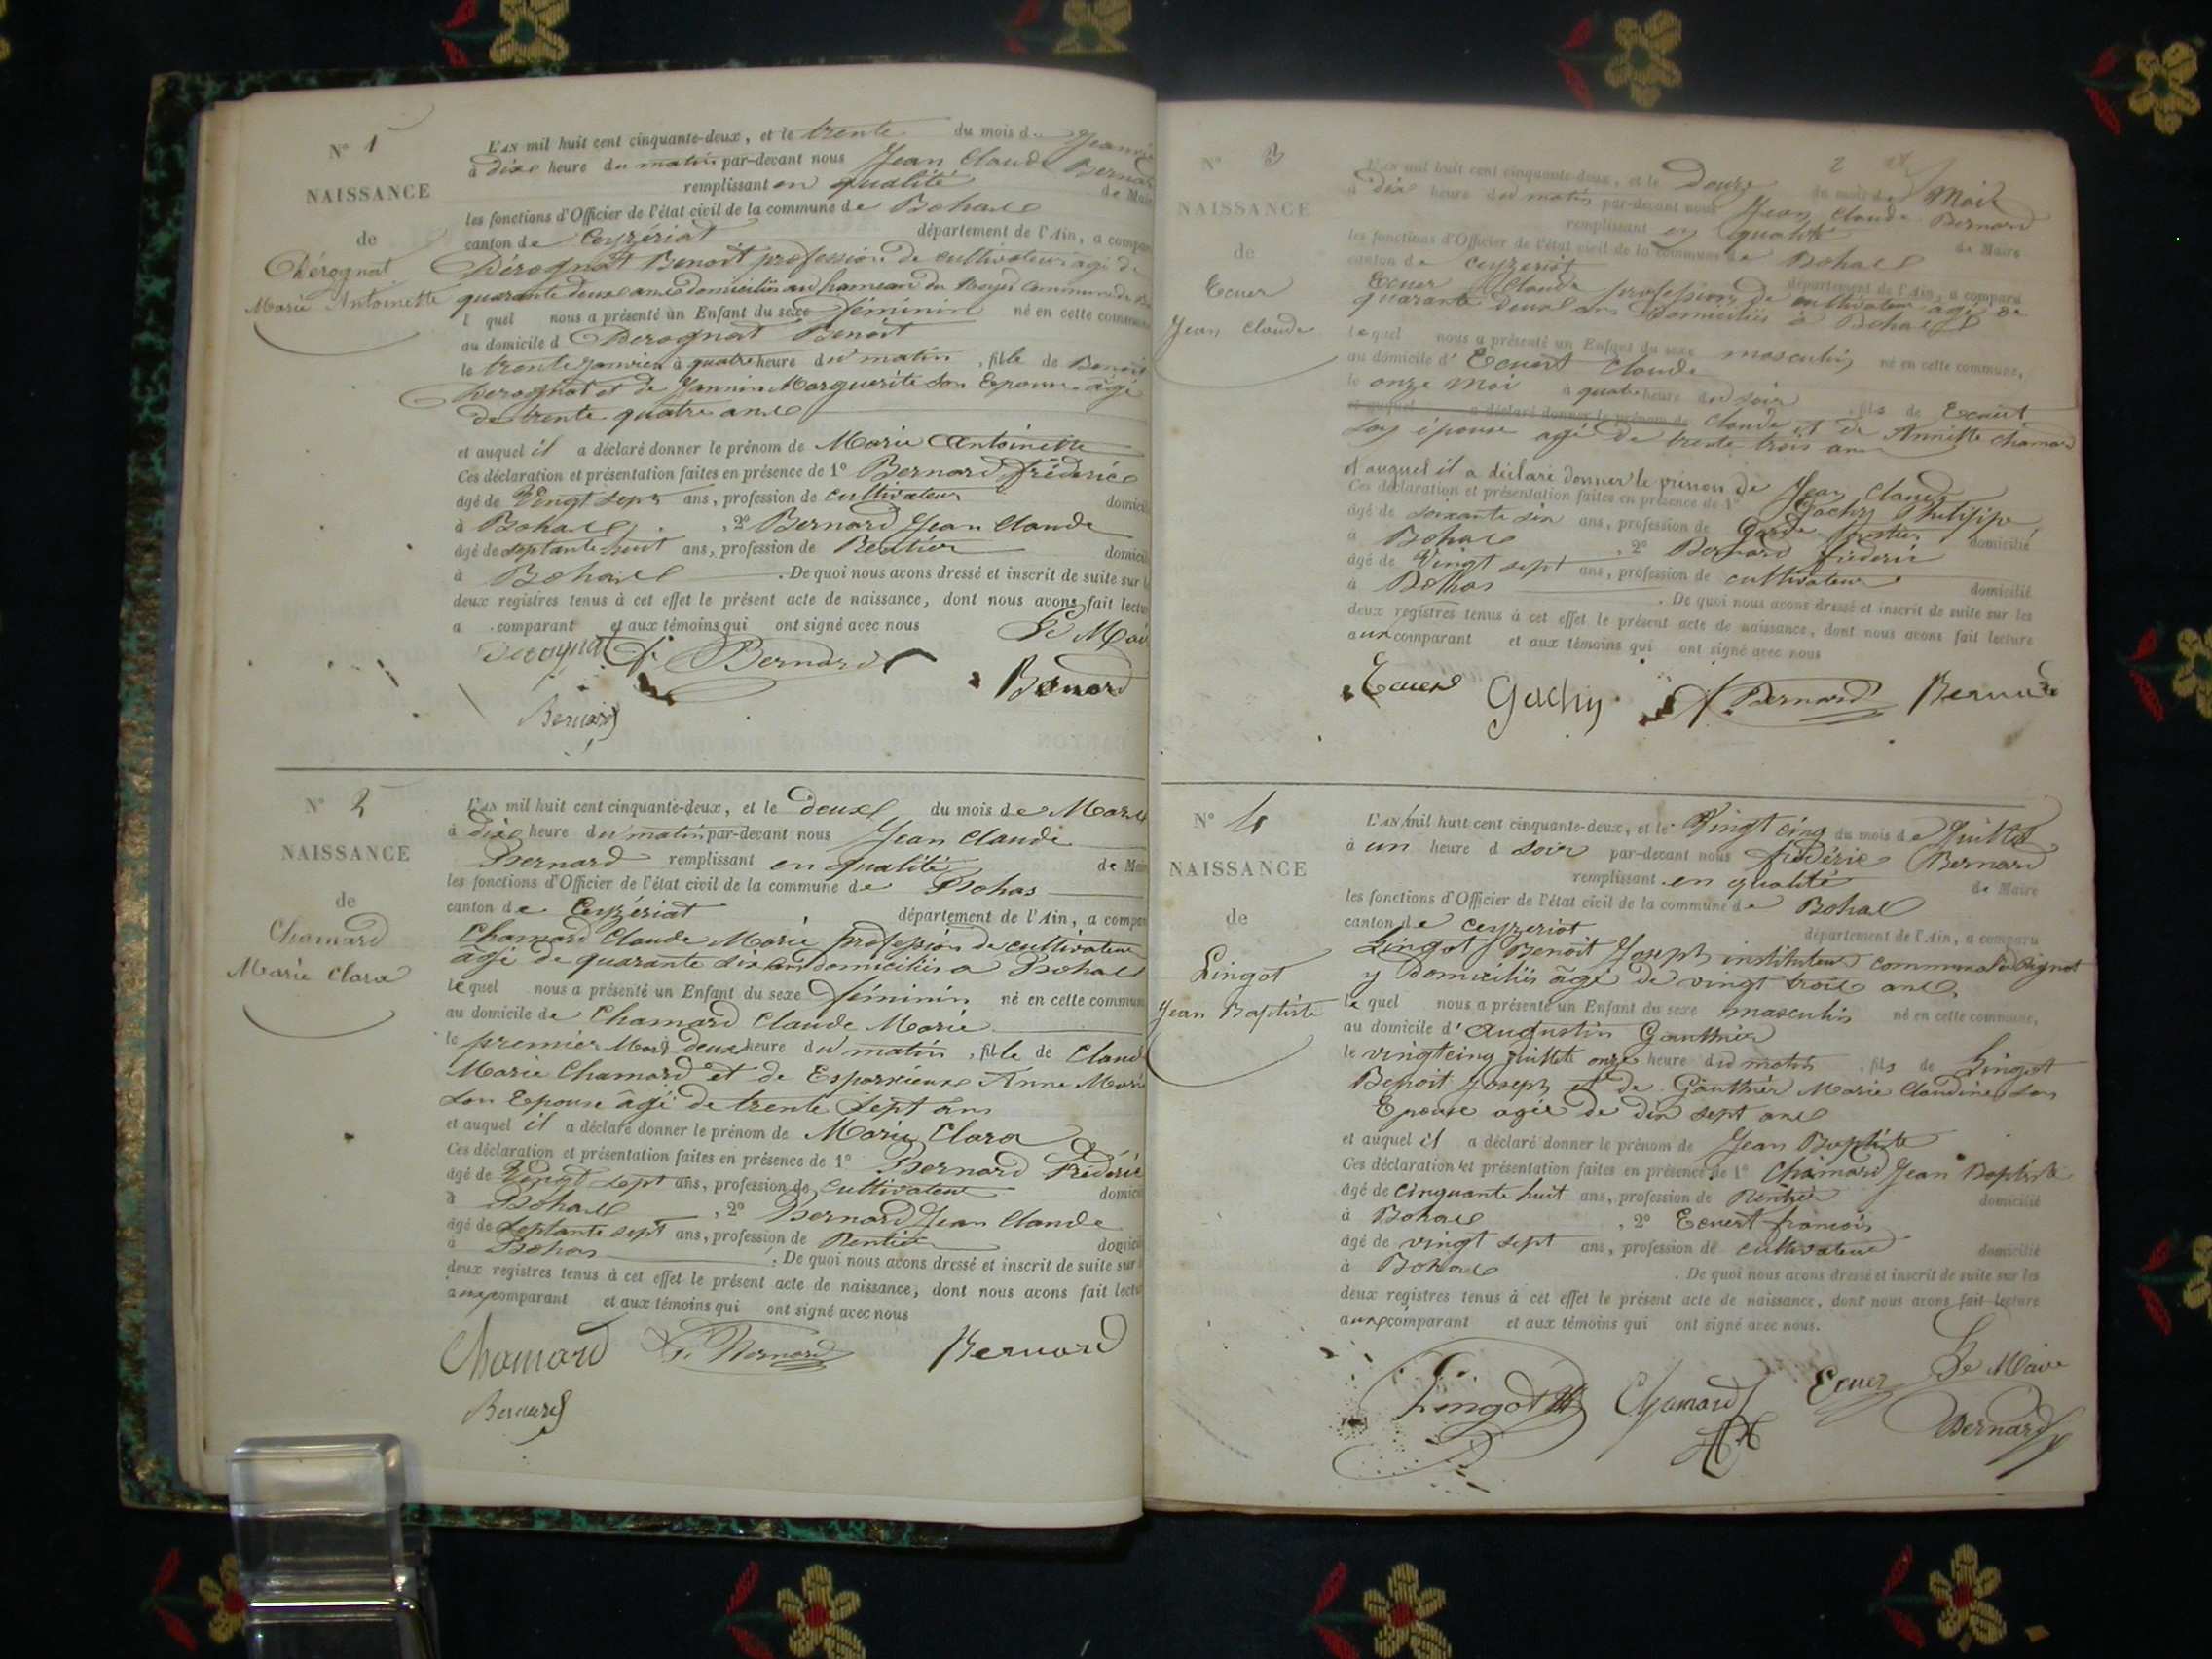 N° 1
NAISSANCE
de
Dérognat
Marie Antoinette
L'AN mil huit cent cinquante-deux, et le trente du mois d
à dix heure du matin par-devant nous Jean Claude
remplissant en qualité de
les fonctions d'Officier de l'état civil de la commune de Bohas
canton de Ceyzériat département de l'Ain, a
Dérognat Benoit profession de cultivateur agé de
quarante deux ans domiciliés au hameau du
l quel nous a présenté un Enfant du sexe féminin né en cette
au domicile d Derognat Benoit
le trente janvier à quatre heure du matin, fille de
Derognat et de Marguerite son Epouse âgé
de trente quatre ans
et auquel il a déclaré donner le prénom de Marie Antoinette
Ces déclaration et présentation faites en présence de 1° Bernard frédéric
âgé de Vingt sept ans, profession de cultivateur
à Bohas, 2° Bernard Jean Claude
âgé de septante huit ans, profession de Rentier
à Bohas. De quoi nous avons dressé et inscrit de suite sur
deux registres tenus à cet effet le présent acte de naissance, dont nous avons fait
a comparant et aux témoins qui ont signé avec nous
Derognat f. Bernard
Bernard
Bernard
N° 2
NAISSANCE
de
Chamard
Marie Clara
L'AN mil huit cent cinquante-deux, et le deux du mois de Mars
à dix heure du matin par-devant nous Jean Claude
Bernard remplissant en qualité de
les fonctions d'Officier de l'état civil de la commune de Bohas
canton de Ceyzériat département de l'Ain, a
Chamard Claude Marie profession de cultivateur
âgé de quarante six ans domiciliés a Bohas
lequel nous a présenté un Enfant du sexe féminin né en cette
au domicile de Chamard Claude Marie
le premier Mars à deux heure du matin, fille de
Marie Chamard et de Anne
son Epouse âgé de trente sept ans
et auquel il a déclaré donner le prénom de Marie Clara
Ces déclaration et présentation faites en présence de 1° Bernard Frédéric
âgé de Vingt sept ans, profession de cultivateur
à Bohas, 2° Bernard Jean Claude
âgé de septante sept ans, profession de Rentier
à Bohas. De quoi nous avons dressé et inscrit de suite sur
deux registres tenus à cet effet le présent acte de naissance, dont nous avons fait
aux comparant et aux témoins qui ont signé avec nous
Chamard f. Bernard Bernard
Bernard
N° 3
NAISSANCE
de
Ecuer
Jean Claude
2
L'AN mil huit cent cinquante-deux, et le Douze du mois de Mai
à dix heure du matin par-devant nous Jean Claude Bernard
remplissant en qualité de Maire
les fonctions d'Officier de l'état civil de la commune de Bohas
canton de Ceyzeriat département de l'Ain, a comparu
Ecuer Claude profession de cultivateur agé de
quarante deux ans Domiciliés à Bohas
lequel nous a présenté un Enfant du sexe masculin né en cette commune,
au domicile d' Ecuert Claude
le onze Mai à quatre heure du soir, fils de Ecuert
et auquel a déclaré donner le prénom de Claude et de Annette Chamard
son épouse agé de trente trois ans
et auquel il a déclaré donner le prénom de Jean Claude
Ces déclaration et présentation faites en présence de 1° Gachy Philippe
âgé de soixante six ans, profession de Garde forestier domicilié
à Bohas, 2° Bernard frédéric
âgé de Vingt sept ans, profession de cultivateur domicilié
à Bohas. De quoi nous avons dressé et inscrit de suite sur les
deux registres tenus à cet effet le présent acte de naissance, dont nous avons fait lecture
aux comparant et aux témoins qui ont signé avec nous
Ecuer Gachy f. Bernard Bernard
N° 4
NAISSANCE
de
Lingot
Jean Baptiste
L'AN mil huit cent cinquante-deux, et le Vingt cinq du mois de Juillet
à un heure d soir par-devant nous frédéric Bernard
remplissant en qualité de Maire
les fonctions d'Officier de l'état civil de la commune de Bohas
canton de Ceyzeriat département de l'Ain, a comparu
Lingot Benoit Joseph instituteur communal
y domiciliés âgé de vingt trois ans
le quel nous a présenté un Enfant du sexe masculin né en cette commune,
au domicile d' Augustin Gauthier
le vingt cinq juillet onze heure du matin, fils de Lingot
Benoit Joseph et de Gauthier Marie Claudine son
Epouse agée de dix sept ans
et auquel il a déclaré donner le prénom de Jean Baptiste
Ces déclaration et présentation faites en présence de 1° Chamard Jean Baptiste
âgé de cinquante huit ans, profession de Rentier domicilié
à Bohas, 2° Ecuert françois
âgé de vingt sept ans, profession de cultivateur domicilié
à Bohas. De quoi nous avons dressé et inscrit de suite sur les
deux registres tenus à cet effet le présent acte de naissance, dont nous avons fait lecture
aux comparant et aux témoins qui ont signé avec nous.
Lingot Chamard Ecuer Le Maire
Bernard